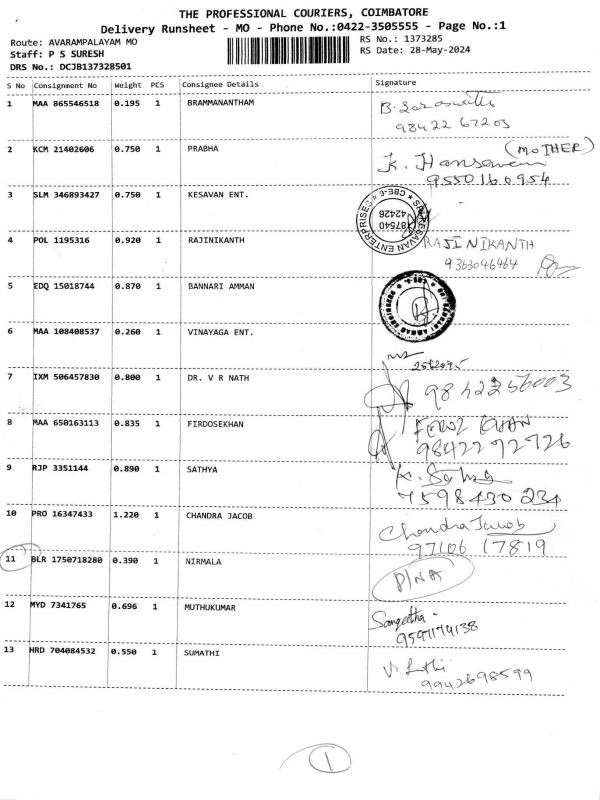 THE PROFESSIONAL COURIERS, COIMBATORE
Delivery Runsheet - MO - Phone No.:0422-3505555 - Page No.:1
Route: AVARAMPALAYAM MO
Staff: P S SURESH
DRS No.: DCJB137328501
RS No.: 1373285
RS Date: 28-May-2024
S No Consignment No Weight PCS Consignee Details Signature
1 MAA 865546518 0.195 1 BRAMMANANTHAM
98422 67203
2 KCM 21402606 0.750 1 PRABHA (MOTHER)
9550160954
3 SLM 346893427 0.750 1 KESAVAN ENT.
4 POL 1195316 0.920 1 RAJINIKANTH RAJINIKANTH
9363046464
5 EDQ 15018744 0.870 1 BANNARI AMMAN
6 MAA 108408537 0.260 1 VINAYAGA ENT.
7 IXM 506457830 0.800 1 DR. V R NATH 9842256003
8 MAA 650163113 0.835 1 FIRDOSEKHAN FEROZ KHAN
9842292726
9 RJP 3351144 0.890 1 SATHYA
7598430234
10 PRO 16347433 1.220 1 CHANDRA JACOB Chandra Jacob
97106 17819
11 BLR 1750718280 0.390 1 NIRMALA D/NA
12 MYD 7341765 0.696 1 MUTHUKUMAR Sangeetha
9597174138
13 HRD 704084532 0.550 1 SUMATHI
9942698599
1